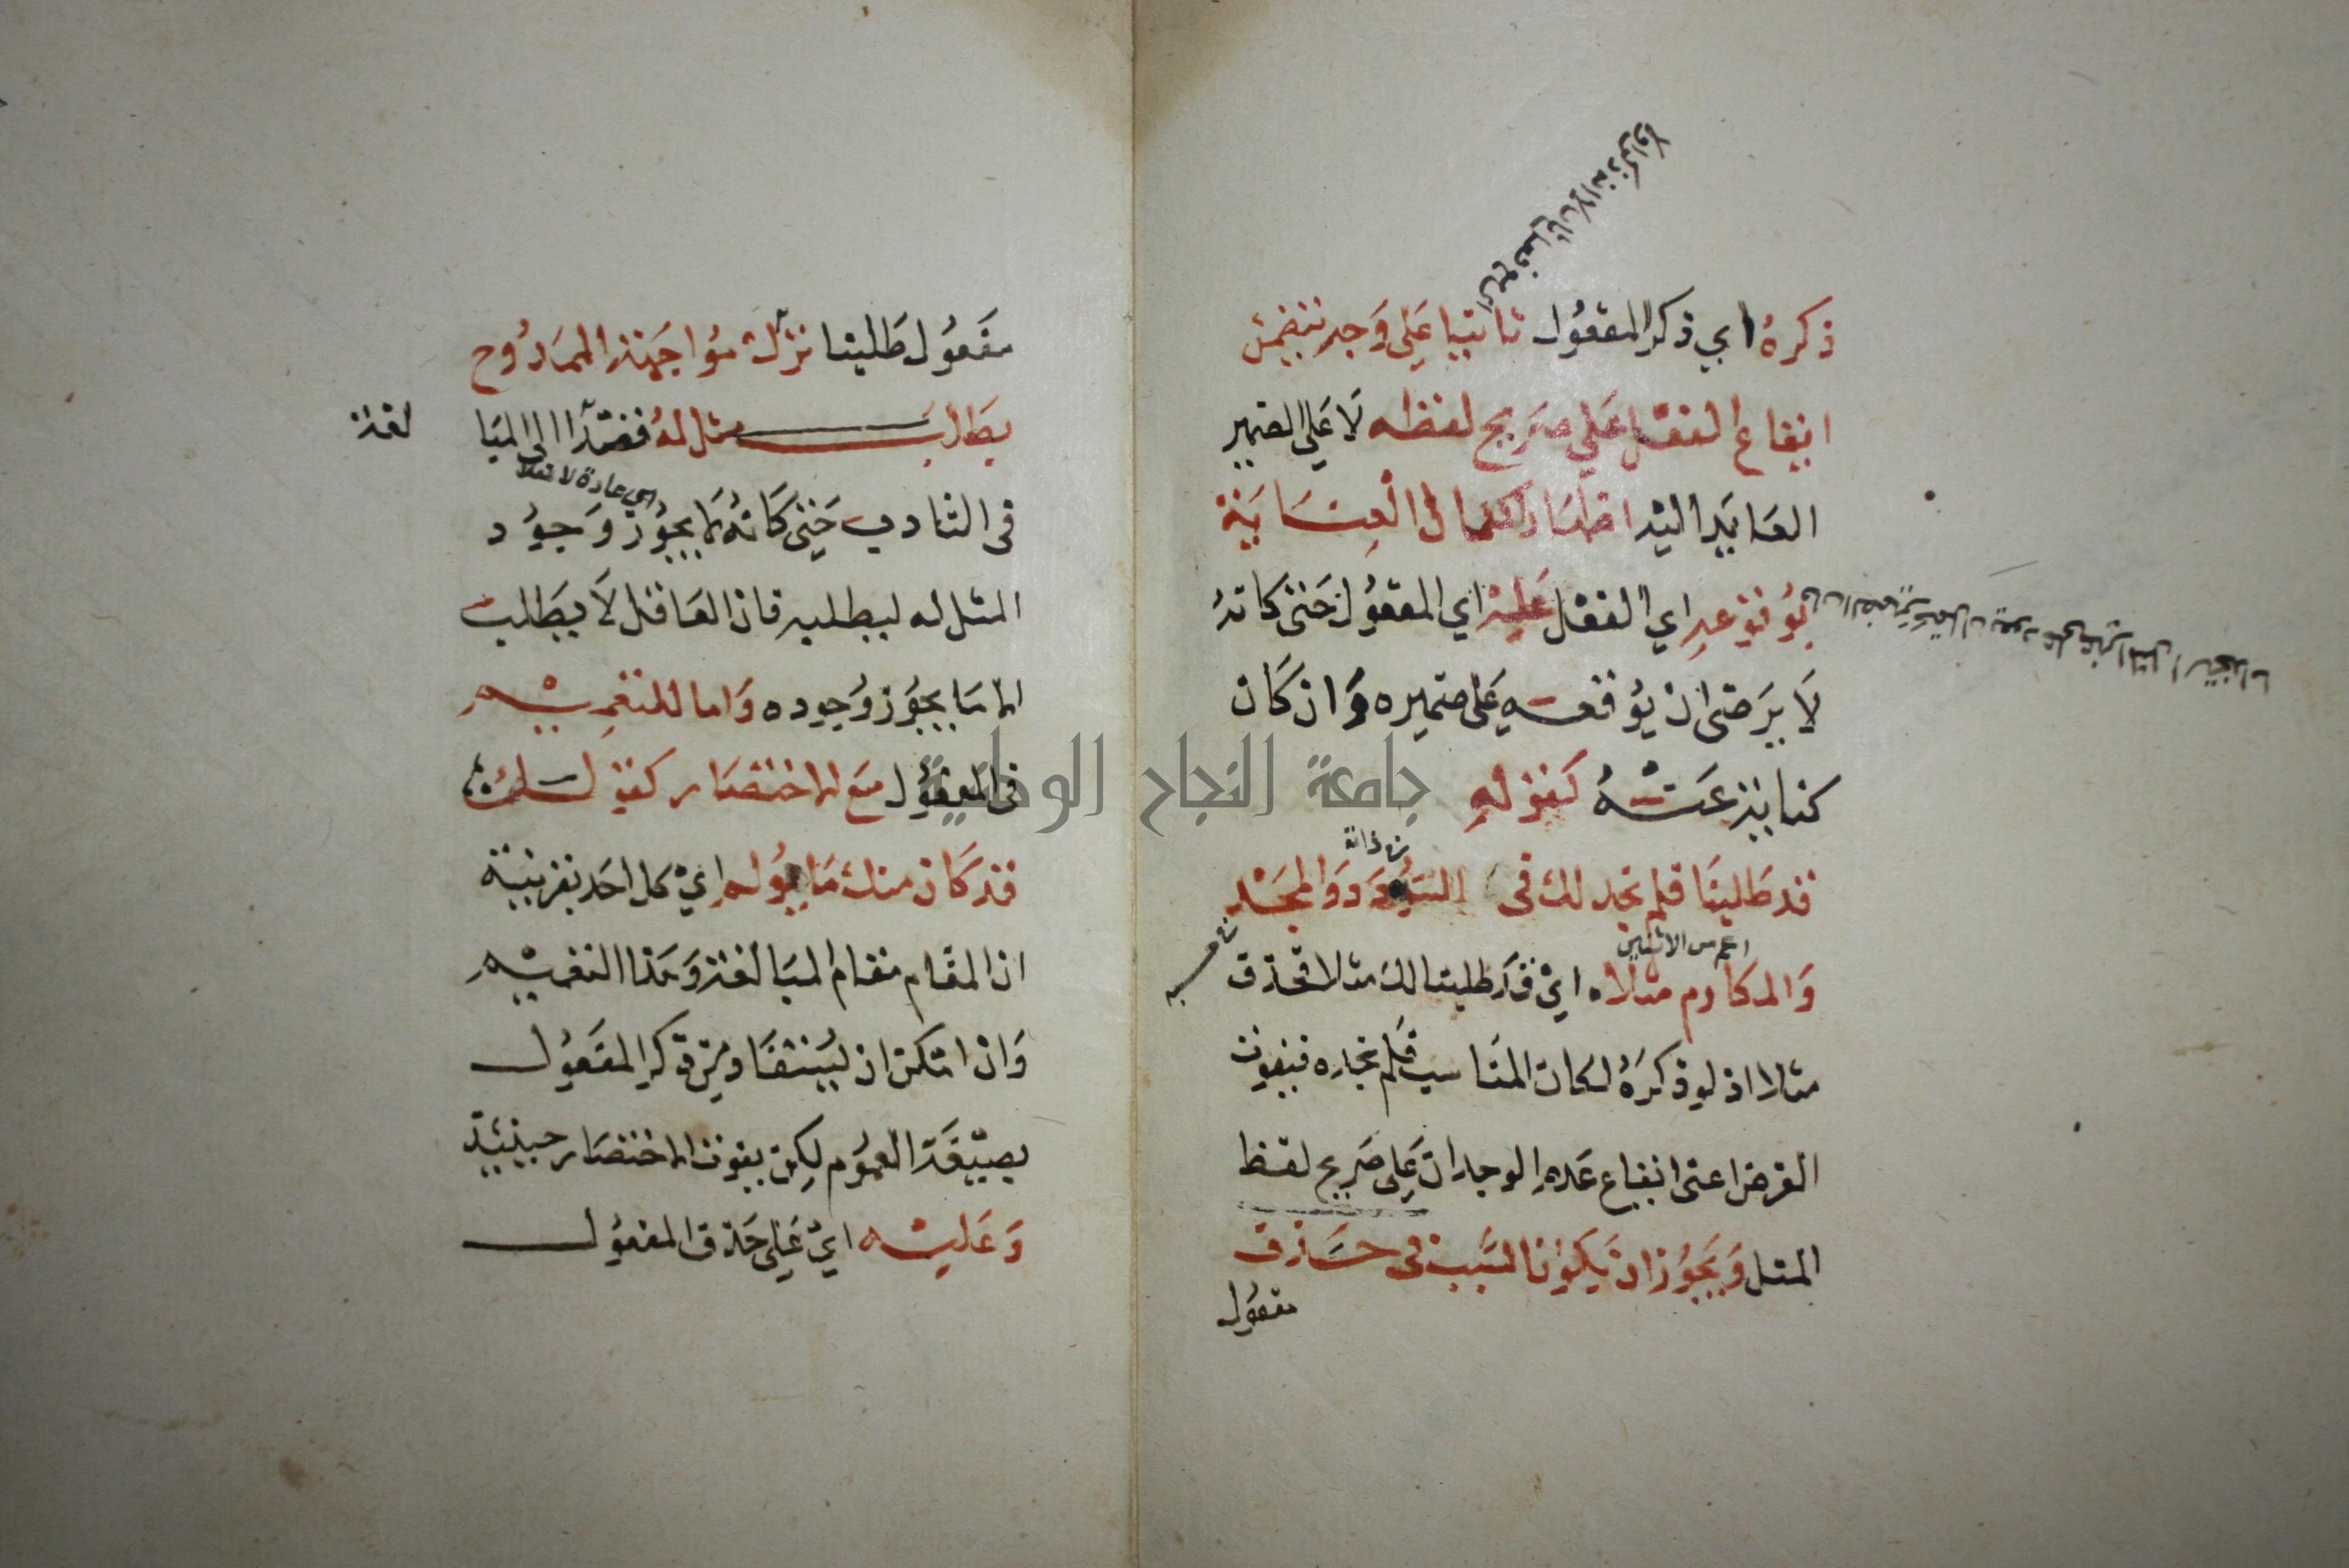 ذكرهُ اي ذكر المفعُول ثانيا عَلي وَجهٍ يتضمن
ايقاع الفعْل عَلي صَريح لفظه لَا عَلي الضمير
العَايد اليْه اظهارا لكمال العِنَايَة
بوُقوعهِ اي الفعْل عَليْه اي المفعُول حَتى كانهُ
لَا يَرضى ان يُوقعه عَلى ضميره وَان كان
كناية عَنْهُ كقَوْلهِ
قد طَلبنَا فلم نجد لك في السُؤدَد وَالمجْد
ن ذاته
وَالمكارم مثلا اي قَد طلبنا لك مثلا فحذف
اعم من الاثنين
مثلا اذ لو ذكرَهُ لكان المنَاسب فلَم نجده فيفوت
الغرض اعنى ايقاع عَدم الوجدان عَلى صَريح لفظ
المثل وَيَجُوز ان يَكون السَّبب فى حَذف
مفعُول
مفعُول طَلبنا تَرْك مُوَاجَهَة الممدُوح
بطَلب مثل لهُ قصْدًا الى المبَا
لغة
اي عادة لا عقلا
فى التادب حَتى كانهُ لا يجُوز وجُود
المثل له ليطلبه فان العَاقل لَا يطَلب
الا مَا يجُوز وُجوده وَاما للتعمِيْم
فى المفعُول مَع الاختصَار كقولك
قد كَان منك مَا يُؤلم ايْ كل احَد بقرينة
ان المقَام مقام المبَالغة وَهَذا التعميْم
وَان امكن ان يُستفَاد مِن ذكر المفعُول
بصيغَة العمُوم لكِن يفوت الاختصَار حينئِذ
وَعَليْه ايْ عَلي حَذف المفعُول
جامعة النجاح الوطنية